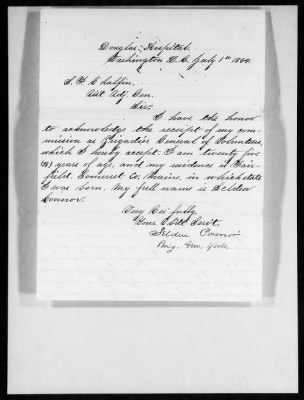 Douglas Hospital,
Washington D. C. July 1st 1864.
S. F. Chalfin,
Asst Adj. Gen.
Sir:
I have the honor
to acknowledge the receipt of my com-
mission as Brigadier General of Volunteers,
which I hereby accept. I am twenty five
(25) years of age, and my residence is Fair-
field, Somerset Co. Maine, in which state
I was born. My full name is Selden
Connor.
Very Res'fully,
Your Obdt Servt.
Selden Connor
Brig. Gen. Vols.